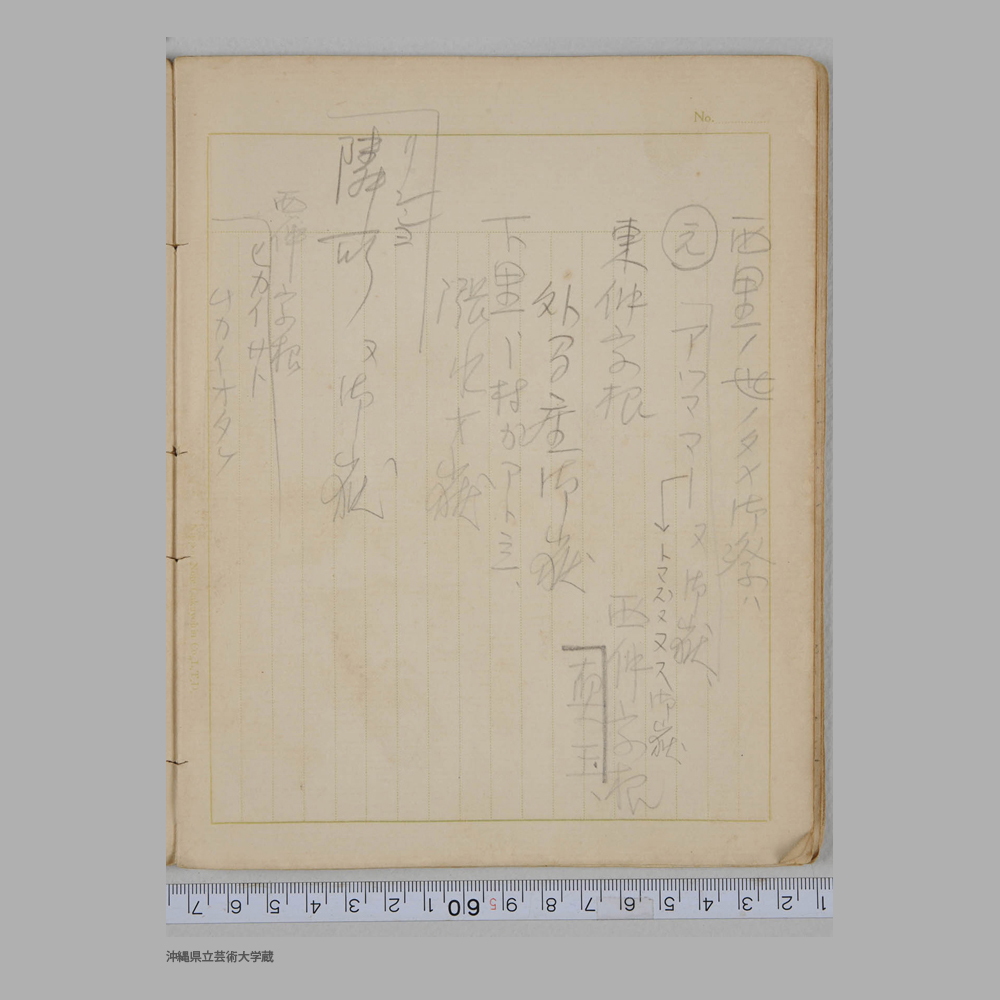 No.
西里ノ世ノタメ御祭ハ
元
「アツママーヌ御嶽、
→トマズヌヌス御嶽
東仲宗根
西仲宗根
外間座御嶽
真玉、
下里ハ村カアト三、
漲水オ嶽
隣町ヌ御嶽
西仲宗根
ヒカイサト
ナカイオタケ
7 6 5 4 3 2 1 60 5 9 8 7 6 5 4 3 2 1
沖縄県立芸術大学蔵